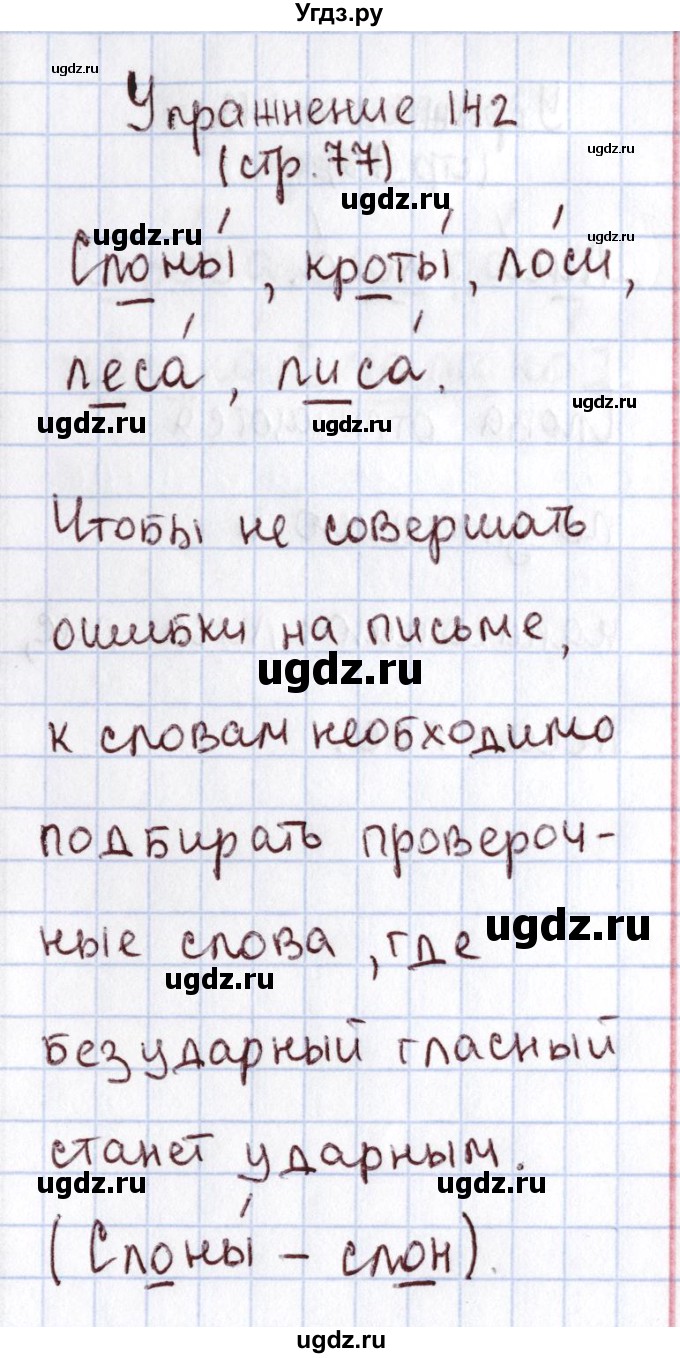 Угдз.ру
ugdz.ru
Упражнение 142
ugdz.ru
(стр. 77)
ugdz.ru
ugdz.ru
ugdz.ru
Слоны́, кроты́, ло́си,
леса́, лиса́.
ugdz.ru
ugdz.ru
ugdz.ru
Чтобы не совершать
ошибки на письме,
ugdz.ru
к словам необходимо
подбирать провероч-
ные слова, где
ugdz.ru
ugdz.ru
безударный гласный
станет ударным.
ugdz.ru
ugdz.ru
(Слоны́ – слон).
ugdz.ru